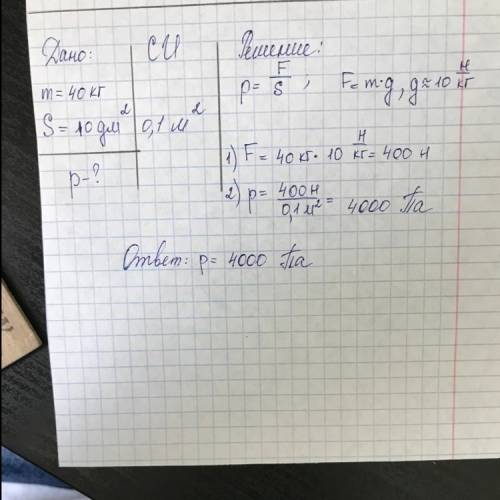 Дано:
m = 40 кг
S = 10 дм²
р-?
СИ
0,1 м²
Решение:
p = F/S , F = m·g, g ≈ 10 Н/кг
1) F = 40 кг · 10 Н/кг = 400 Н
2) p = 400 Н/0,1 м² = 4000 Па
Ответ: p = 4000 Па